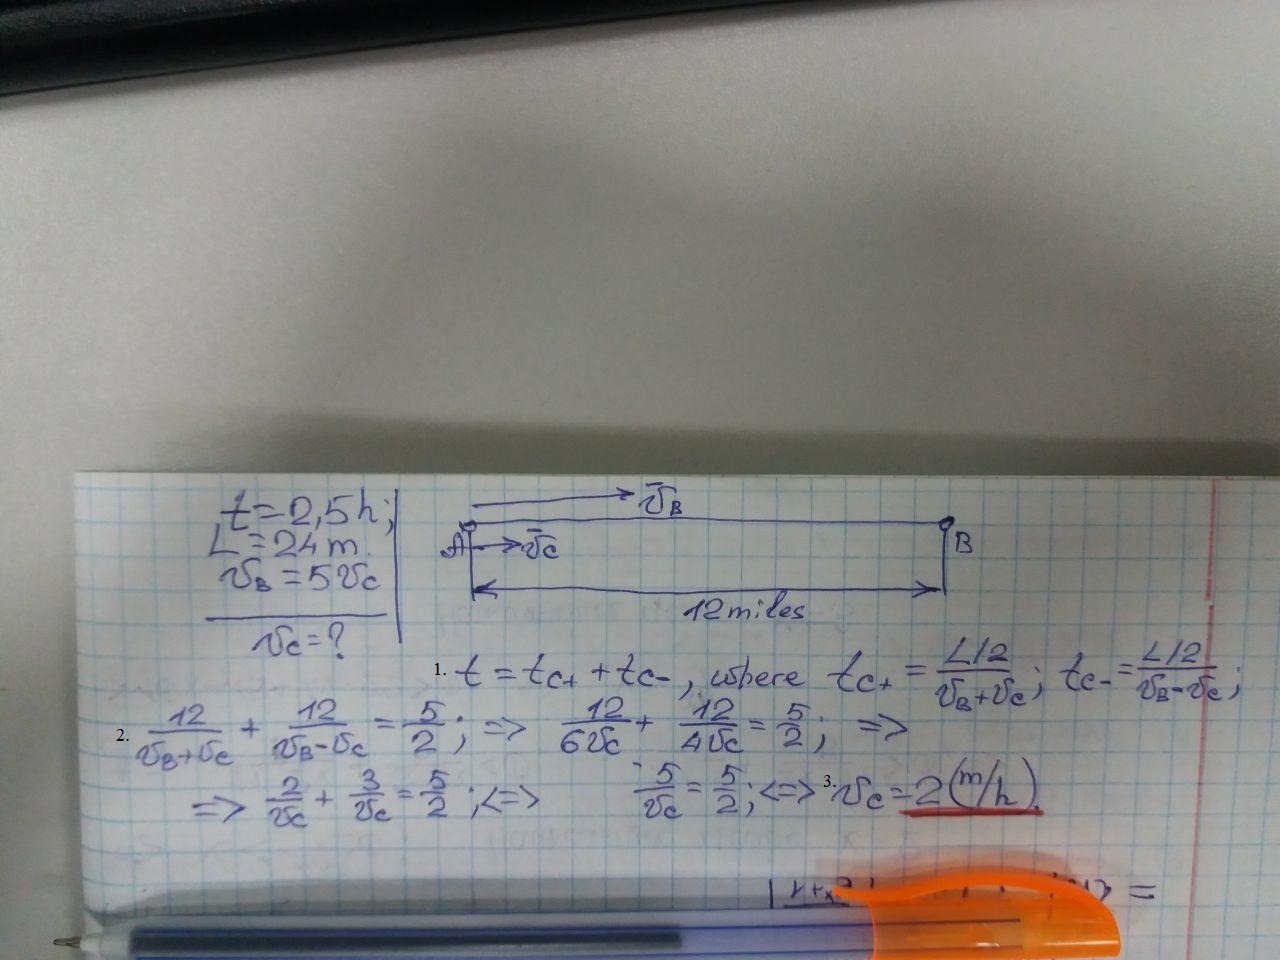 t = 2,5 h;
L = 24 m.
v_B = 5 v_C
v_C = ?
v̄_B
A v̄_C B
12 miles
1. t = t_C+ + t_C-, where t_C+ = (L/2)/(v_B + v_C); t_C- = (L/2)/(v_B - v_C);
2. 12/(v_B + v_C) + 12/(v_B - v_C) = 5/2; => 12/(6v_C) + 12/(4v_C) = 5/2; =>
=> 2/v_C + 3/v_C = 5/2; <=> 5/v_C = 5/2; <=> 3. v_C = 2 (m/h).